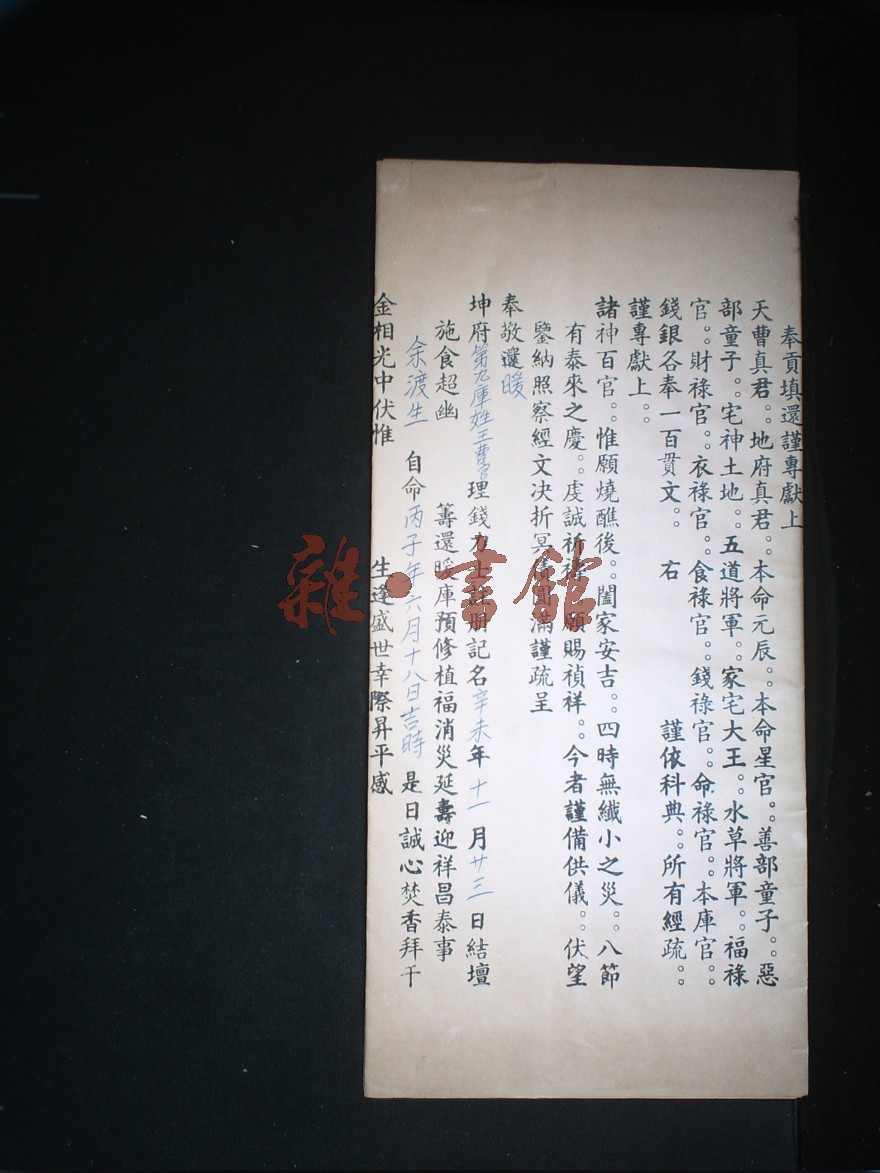 奉貢填還謹專獻上
天曹真君。。地府真君。。本命元辰。。本命星官。。善部童子。。惡
部童子。。宅神土地。。五道將軍。。家宅大王。。水草將軍。。福祿
官。。財祿官。。衣祿官。。食祿官。。錢祿官。。命祿官。。本庫官。。
錢銀各奉一百貫文。。右 謹依科典。。所有經疏。。
謹專獻上。。
諸神百官。。惟願燒醮後。。闔家安吉。。四時無纖小之災。。八節
有泰來之慶。。虔誠祈禱 願賜禎祥。。今者謹備供儀。。伏望
鑒納照察經文決折冥債圓滿謹疏呈
奉敬還暖
坤府第九庫姓王曹官理錢力士 冊記名辛未年十一月廿三日結壇
施食超幽 籌還暖庫預修植福消災延壽迎祥昌泰事
余渡生 自命丙子年六月十八日吉時 是日誠心焚香拜干
金相光中伏惟 生逢盛世幸際昇平感
雜·書館